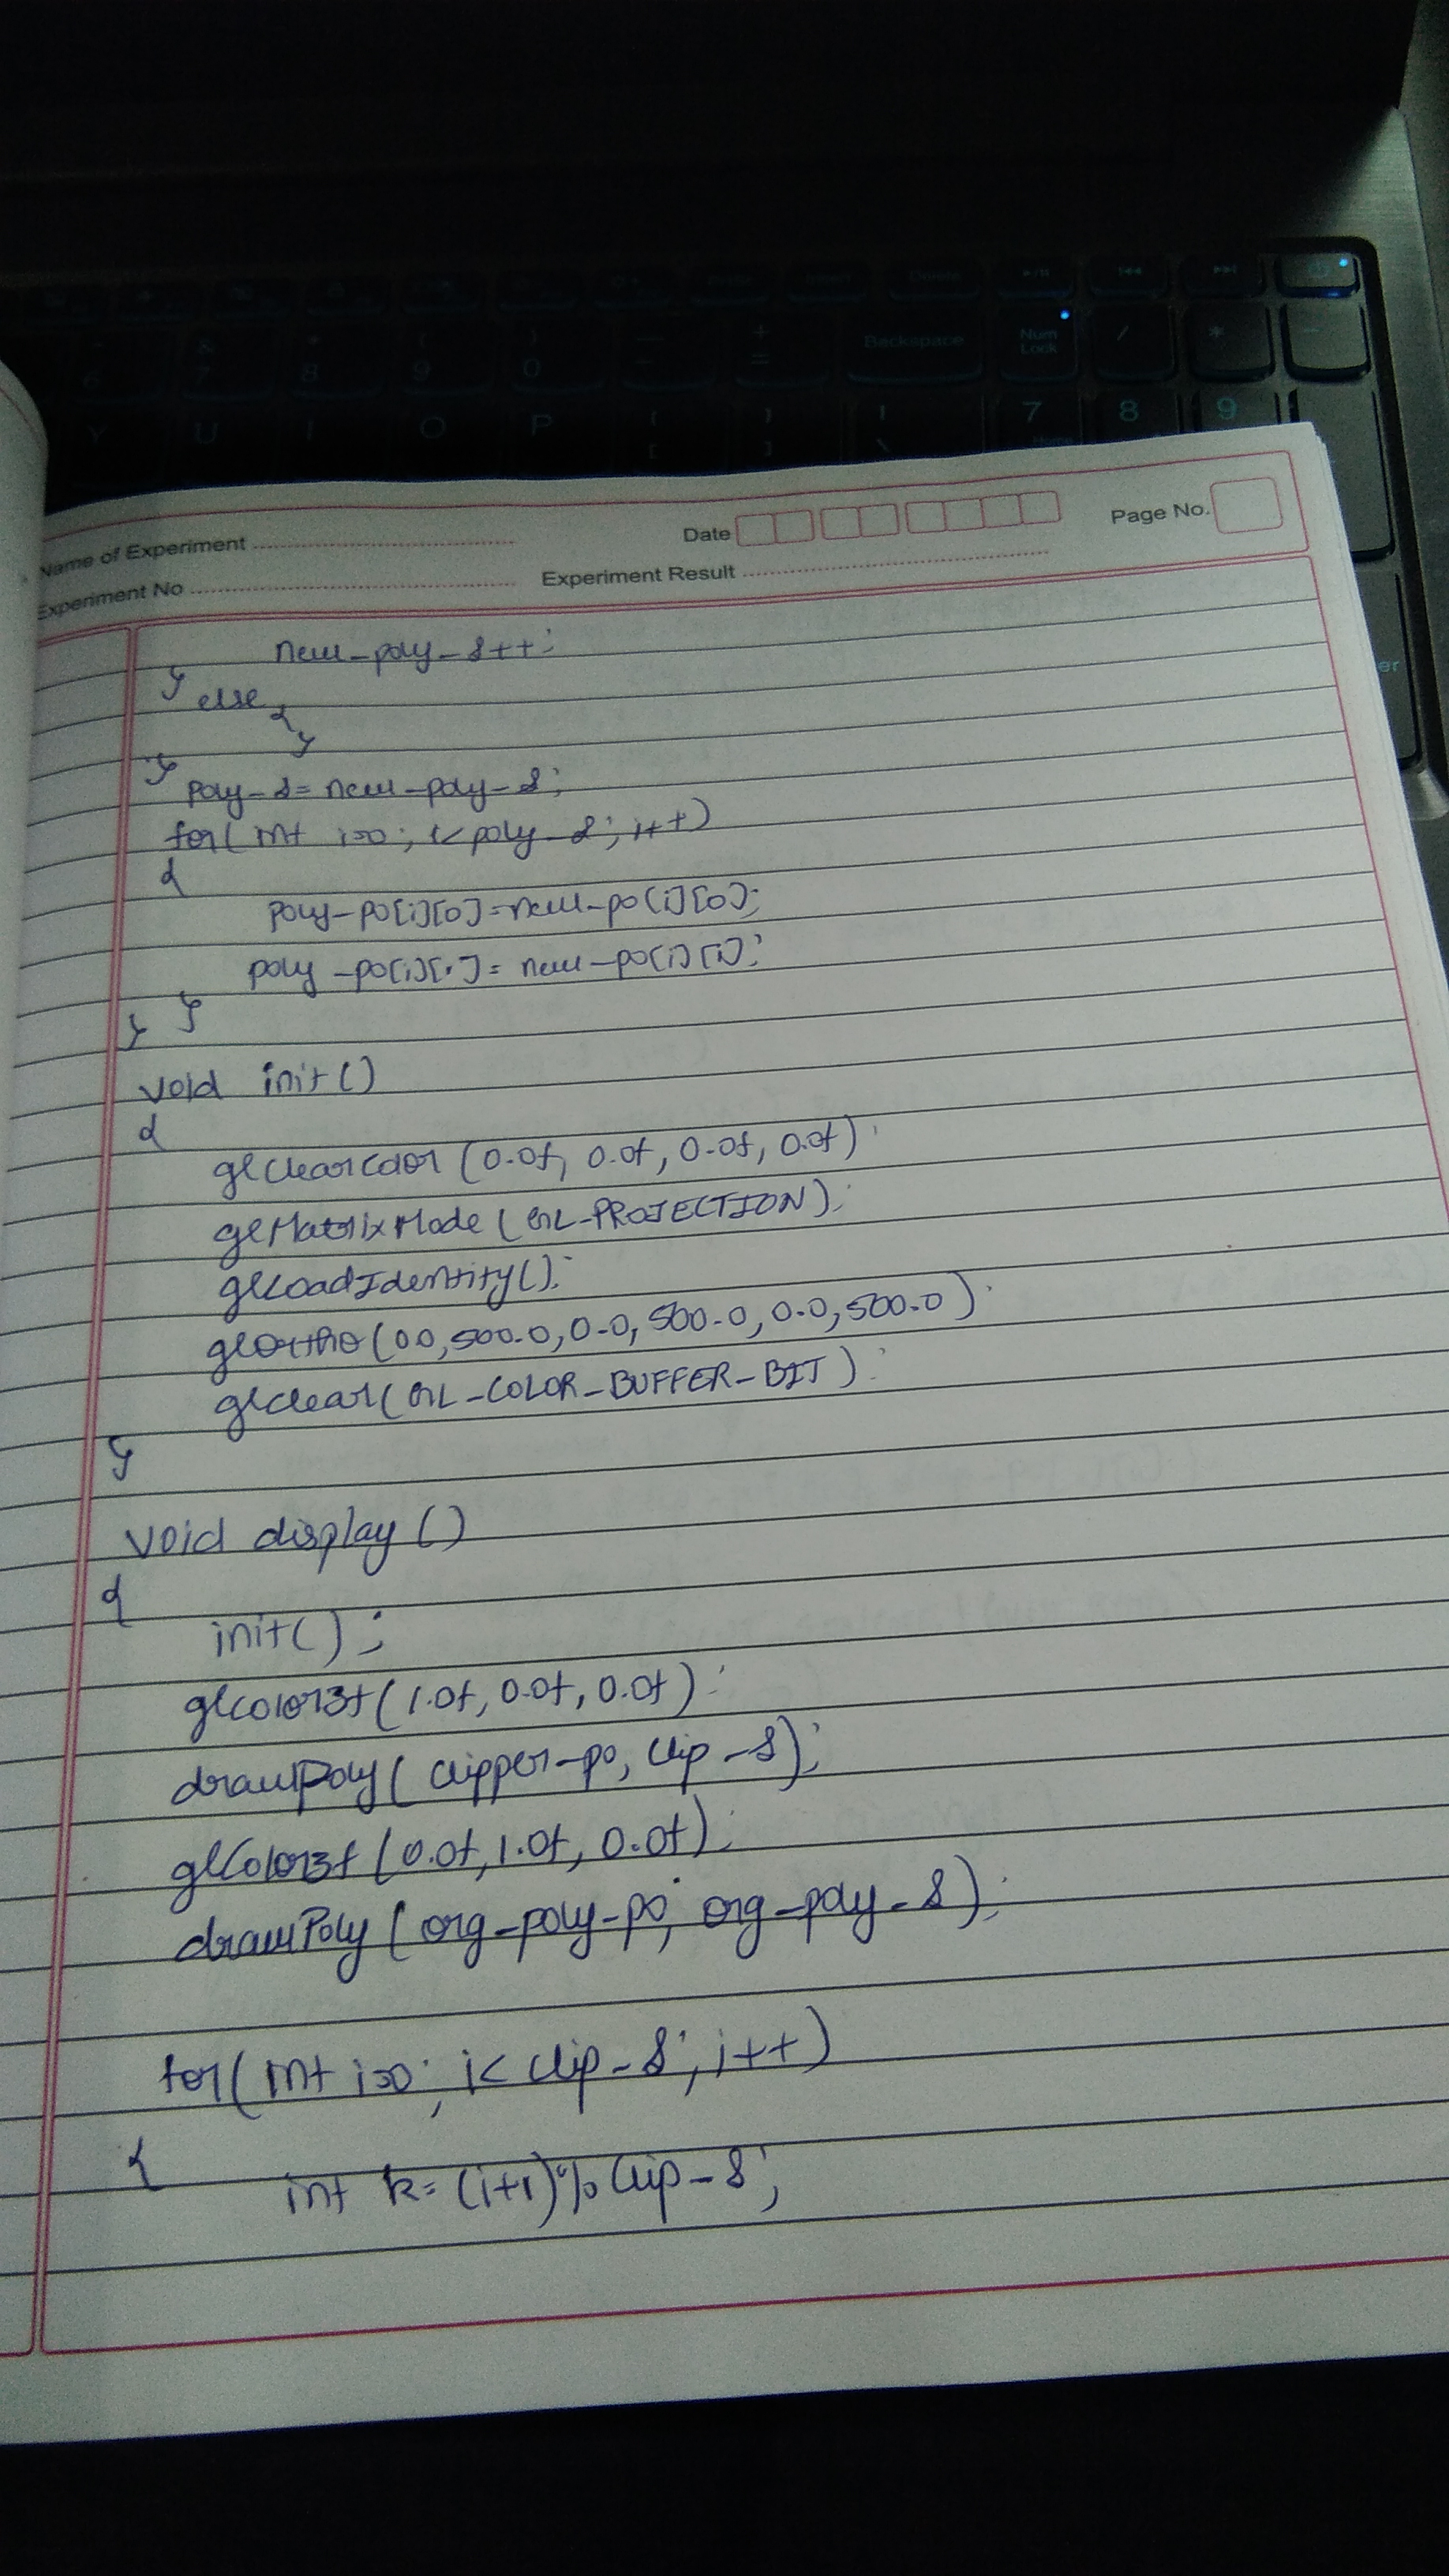 Backspace
Num Lock
7 8 9
Y U I O P
Name of Experiment Date Page No.
Experiment No Experiment Result
new-poly-s++;
} else {
}
}
poly-s = new-poly-s;
for( int i=0; i<poly-s; i++)
{
poly-po[i][0]=new-po[i][0];
poly-po[i][1]= new-po[i][1];
} }
void init()
{
glClearColor (0.0f, 0.0f, 0.0f, 0.0f);
glMatrixMode (GL-PROJECTION);
glLoadIdentity();
glOrtho(0.0, 500.0, 0.0, 500.0, 0.0, 500.0);
glClear(GL-COLOR-BUFFER-BIT);
}
void display ()
{
init();
glColor3f (1.0f, 0.0f, 0.0f);
drawPoly( clipper-po, clip-s);
glColor3f (0.0f, 1.0f, 0.0f);
drawPoly ( org-poly-po, org-poly-s);
for( int i=0; i< clip-s; i++)
{
int k= (i+1)% clip-s;